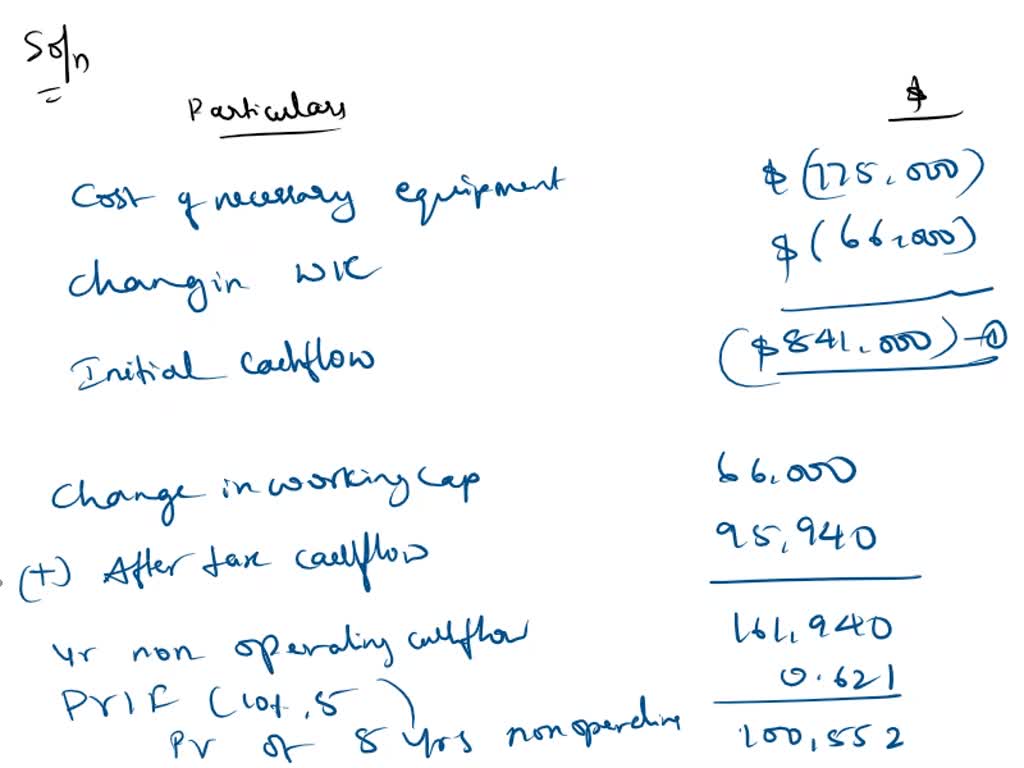 Soln
Particulars $
Cost of necessary equipment $(775,000)
Changin WK $(66,000)
Initial Cashflow ($841,000) → ①
Change in working Cap 66,000
(+) After tax cashflow 95,940
Yr non operating cashflow 161,940
PVIF (10%, 5) 0.621
PV of 5 yrs non operating 100,552